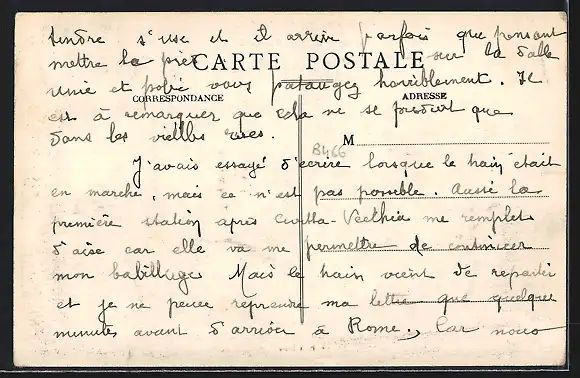 tendre s'use et il arrive parfois que pensant
mettre le pied sur la dalle
CARTE POSTALE
unie et polie vous pataugez horriblement. Il
CORRESPONDANCE
ADRESSE
est à remarquer que cela ne se produit que
dans les vieilles rues.
B466
M
J'avais essayé d'écrire lorsque le train était
en marche, mais ce n'est pas possible. Aussi la
première station après Civitta-Vecchia me remplit
d'aise car elle va me permettre de continuer
mon babillage. Mais le train vient de repartir
et je ne peux reprendre ma lettre que quelques
minutes avant d'arriver à Rome. Car nous